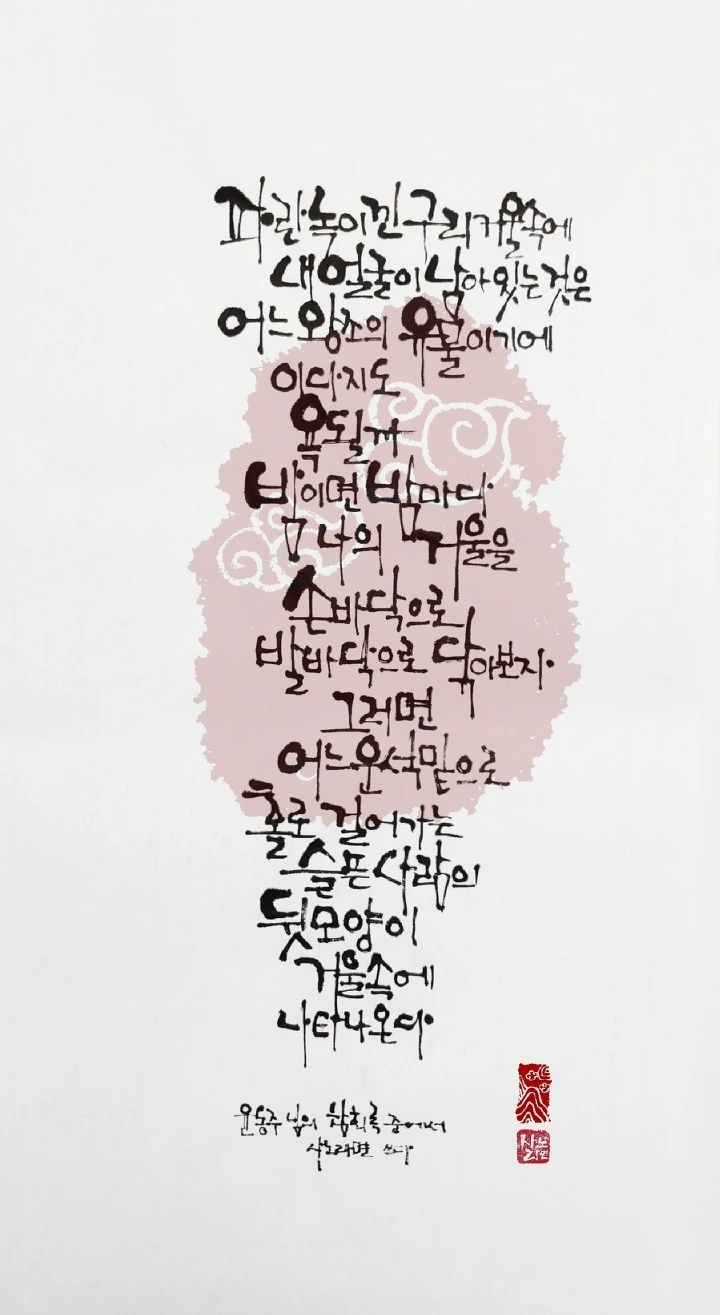 파란 녹이 낀 구리 거울 속에
내 얼굴이 남아 있는 것은
어느 왕조의 유물이기에
이다지도
욕될까
밤이면 밤마다
나의 거울을
손바닥으로
발바닥으로 닦아보자
그러면
어느 운석 밑으로
홀로 걸어가는
슬픈 사람의
뒷모양이
거울 속에
나타나온다
윤동주님의 참회록 중에서
사노라면 쓰다